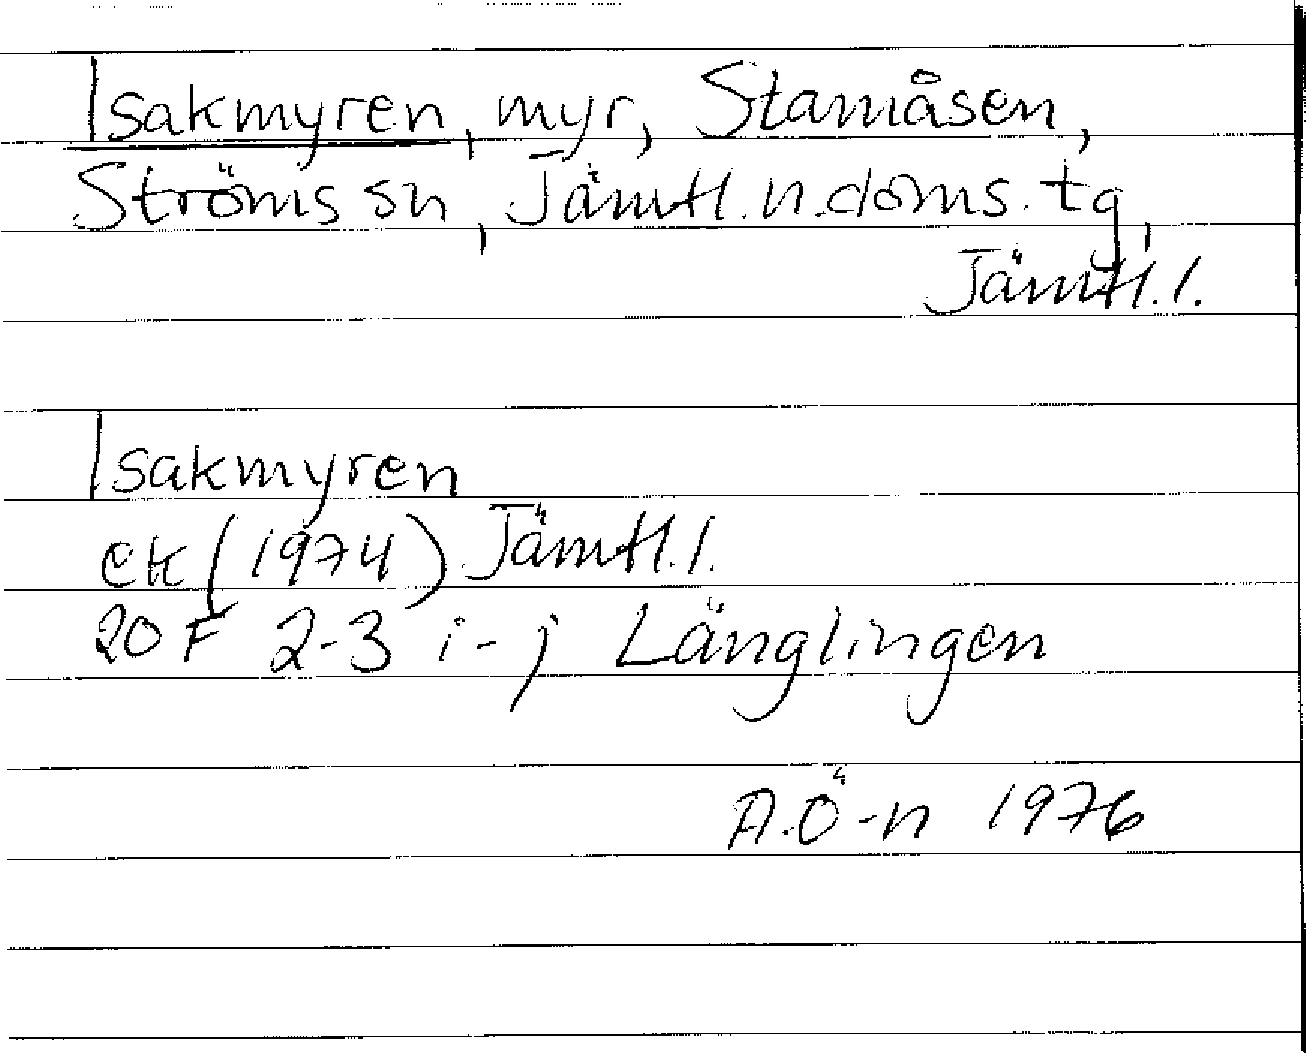 Isakmyren, myr, Stamåsen,
Ströms sn, Jämtl.n.doms.tg,
Jämtl.l.
Isakmyren
ek (1974) Jämtl.l.
20 F 2-3 i-j Länglingen
A.Ö-n 1976